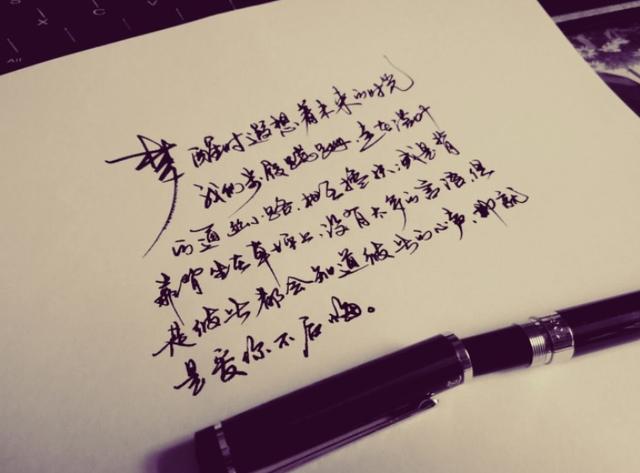 梦醒时遐想着未来的时光
我们步履蹒跚,走在落叶
的通幽小路,相互搀扶,或是背
靠背坐在草坪上,没有太多的言语但
是彼此都会知道彼此的心声,那就
是爱你不后悔。